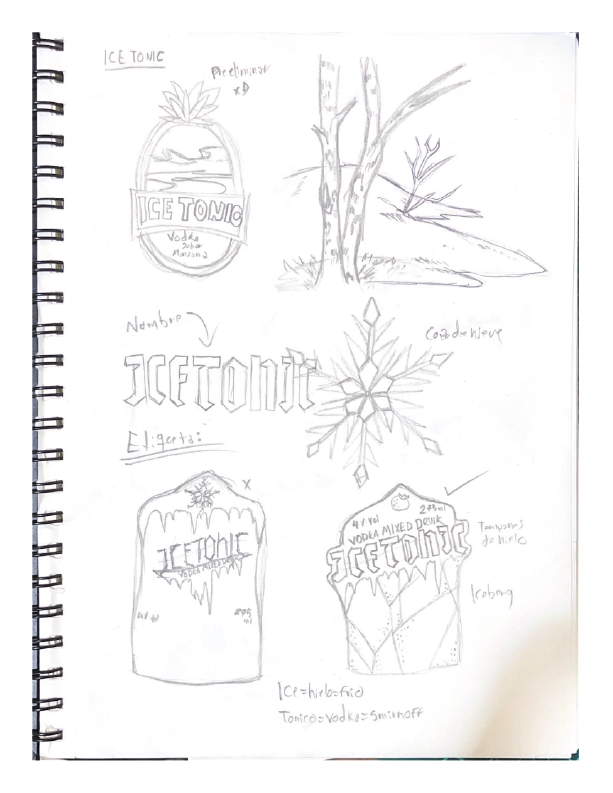 ICE TONIC
Preeliminar
xD
ICE TONIC
Vodka
Sabor
Nombre
Copo de nieve
ICETONIC
Etiqueta:
x
4% vol
275 ml
VODKA MIXED DRINK
ICETONIC
ICETONIC
VODKA MIXED DRINK
Tempanos
de hielo
Iceberg
4% vol
275
ml
Ice=hielo=frio
Tonic=vodka=smirnoff